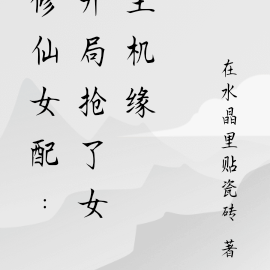 修仙女配：
开局抢了女
主机缘
在水晶里贴瓷砖 著